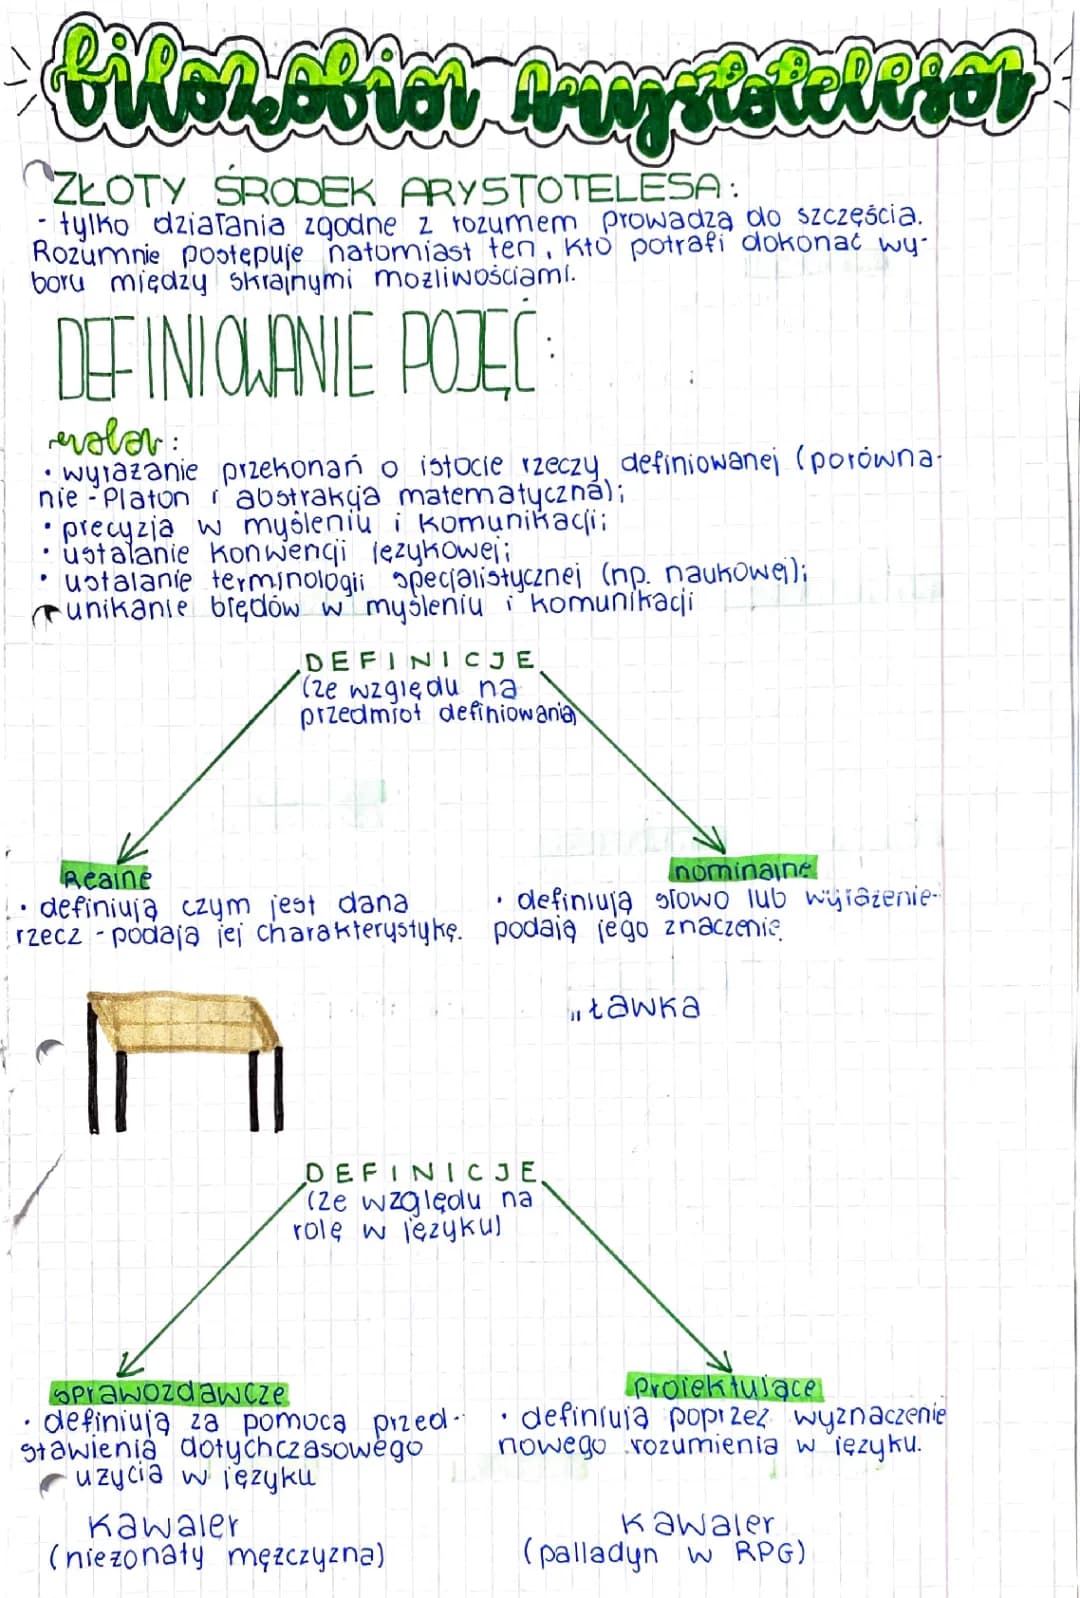 filozofia Arystotelesa
ZŁOTY ŚRODEK ARYSTOTELESA:
- tylko działania zgodne z rozumem prowadzą do szczęścia.
Rozumnie postępuje natomiast ten, kto potrafi dokonać wy-
boru między skrajnymi możliwościami.
DEFINIOWANIE POJĘĆ:
rola:
• wyrażanie przekonań o istocie rzeczy definiowanej (porówna-
nie - Platon i abstrakcja matematyczna);
• precyzja w myśleniu i komunikacji;
• ustalanie konwencji językowej;
• ustalanie terminologii specjalistycznej (np. naukowej);
unikanie błędów w myśleniu i komunikacji
DEFINICJE
(ze względu na
przedmiot definiowania)
Realne
nominalne
• definiują czym jest dana
rzecz - podają jej charakterystykę.
• definiują słowo lub wyrażenie-
podają jego znaczenie.
„ławka
DEFINICJE
(ze względu na
rolę w języku)
sprawozdawcze
projektujące
• definiują za pomocą przed-
stawienia dotychczasowego
użycia w języku
• definiują poprzez wyznaczenie
nowego rozumienia w języku.
kawaler
(nieżonaty mężczyzna)
kawaler
(palladyn w RPG)